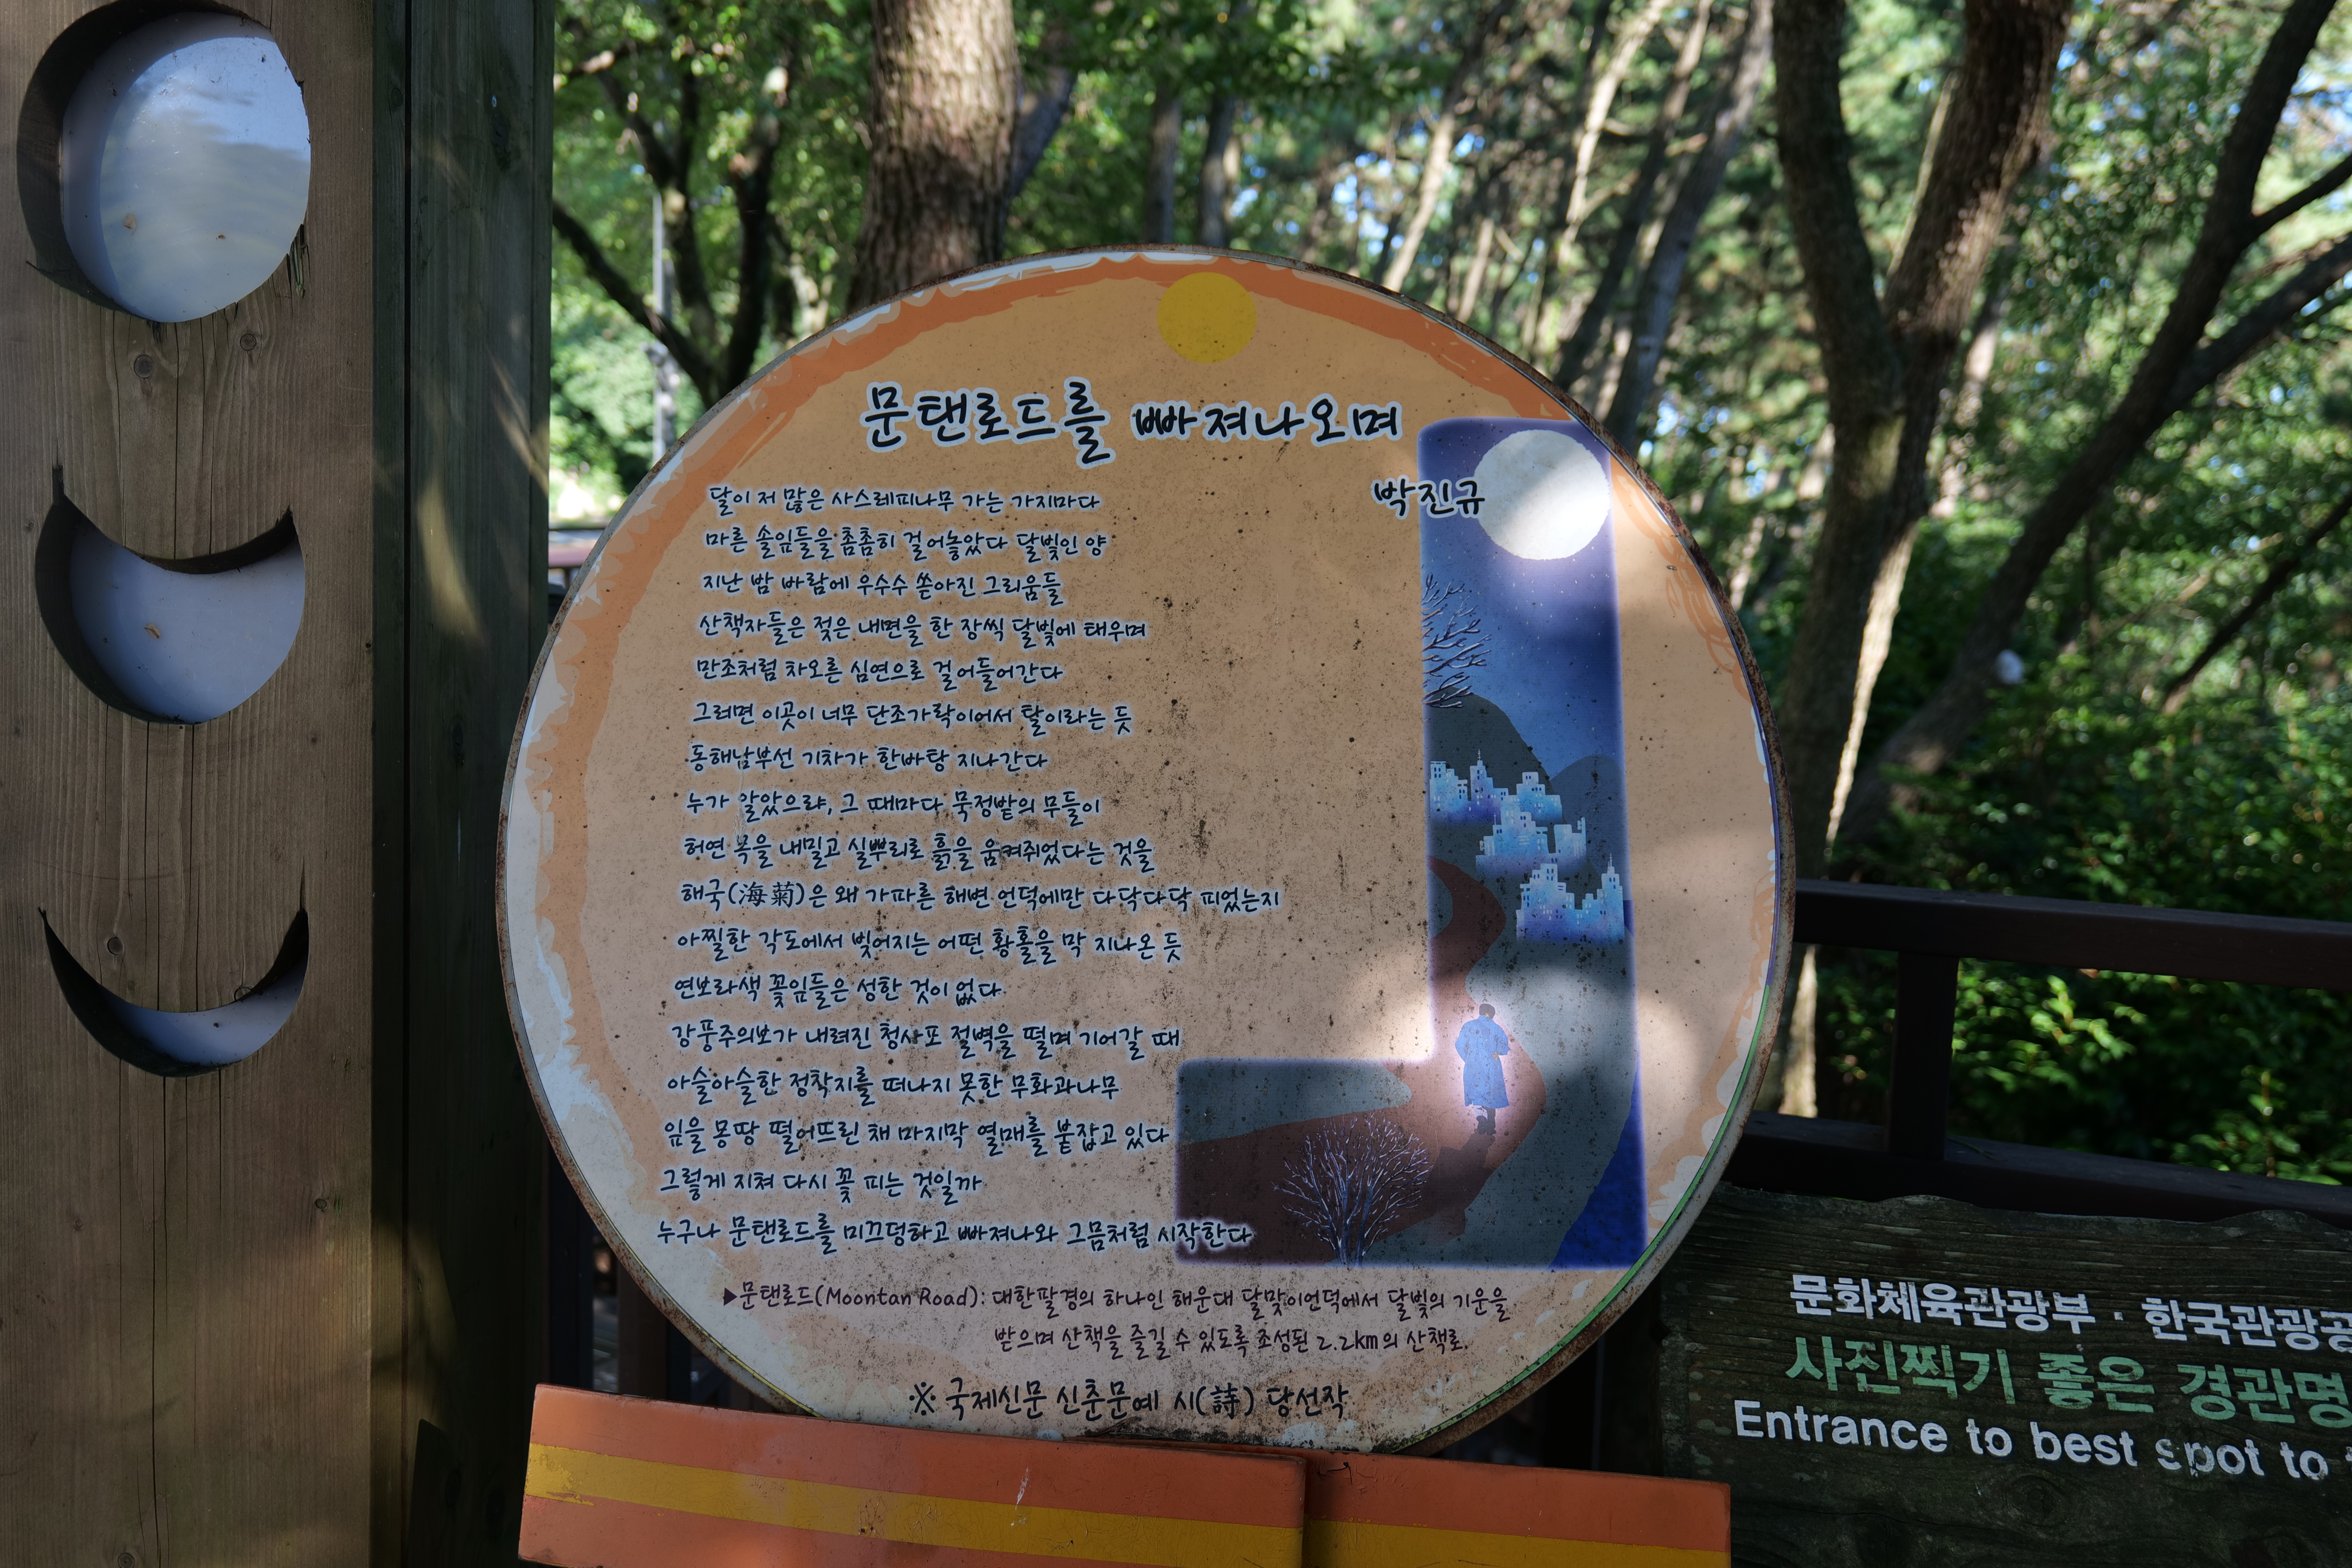 문탠로드를 빠져나오며
박진규
달이 저 많은 사스레피나무 가는 가지마다
마른 솔잎들을 촘촘히 걸어놓았다 달빛인 양
지난 밤 바람에 우수수 쏟아진 그리움들
산책자들은 젖은 내면을 한 장씩 달빛에 태우며
만조처럼 차오른 심연으로 걸어들어간다
그러면 이곳이 너무 단조가락이어서 탈이라는 듯
동해남부선 기차가 한바탕 지나간다
누가 알았으랴, 그 때마다 묵정밭의 무들이
허연 목을 내밀고 실뿌리로 흙을 움켜쥐었다는 것을
해국(海菊)은 왜 가파른 해변 언덕에만 다닥다닥 피었는지
아찔한 각도에서 빚어지는 어떤 황홀을 막 지나온 듯
연보라색 꽃잎들은 성한 것이 없다
강풍주의보가 내려진 청사포 절벽을 떨며 기어갈 때
아슬아슬한 정착지를 떠나지 못한 무화과나무
잎을 몽땅 떨어뜨린 채 마지막 열매를 붙잡고 있다
그렇게 지쳐 다시 꽃 피는 것일까
누구나 문탠로드를 미끄덩하고 빠져나와 그믐처럼 시작한다
▶문탠로드(Moontan Road): 대한팔경의 하나인 해운대 달맞이언덕에서 달빛의 기운을
받으며 산책을 즐길 수 있도록 조성된 2.2km의 산책로.
※ 국제신문 신춘문예 시(詩) 당선작
문화체육관광부 · 한국관광공
사진찍기 좋은 경관명
Entrance to best spot to